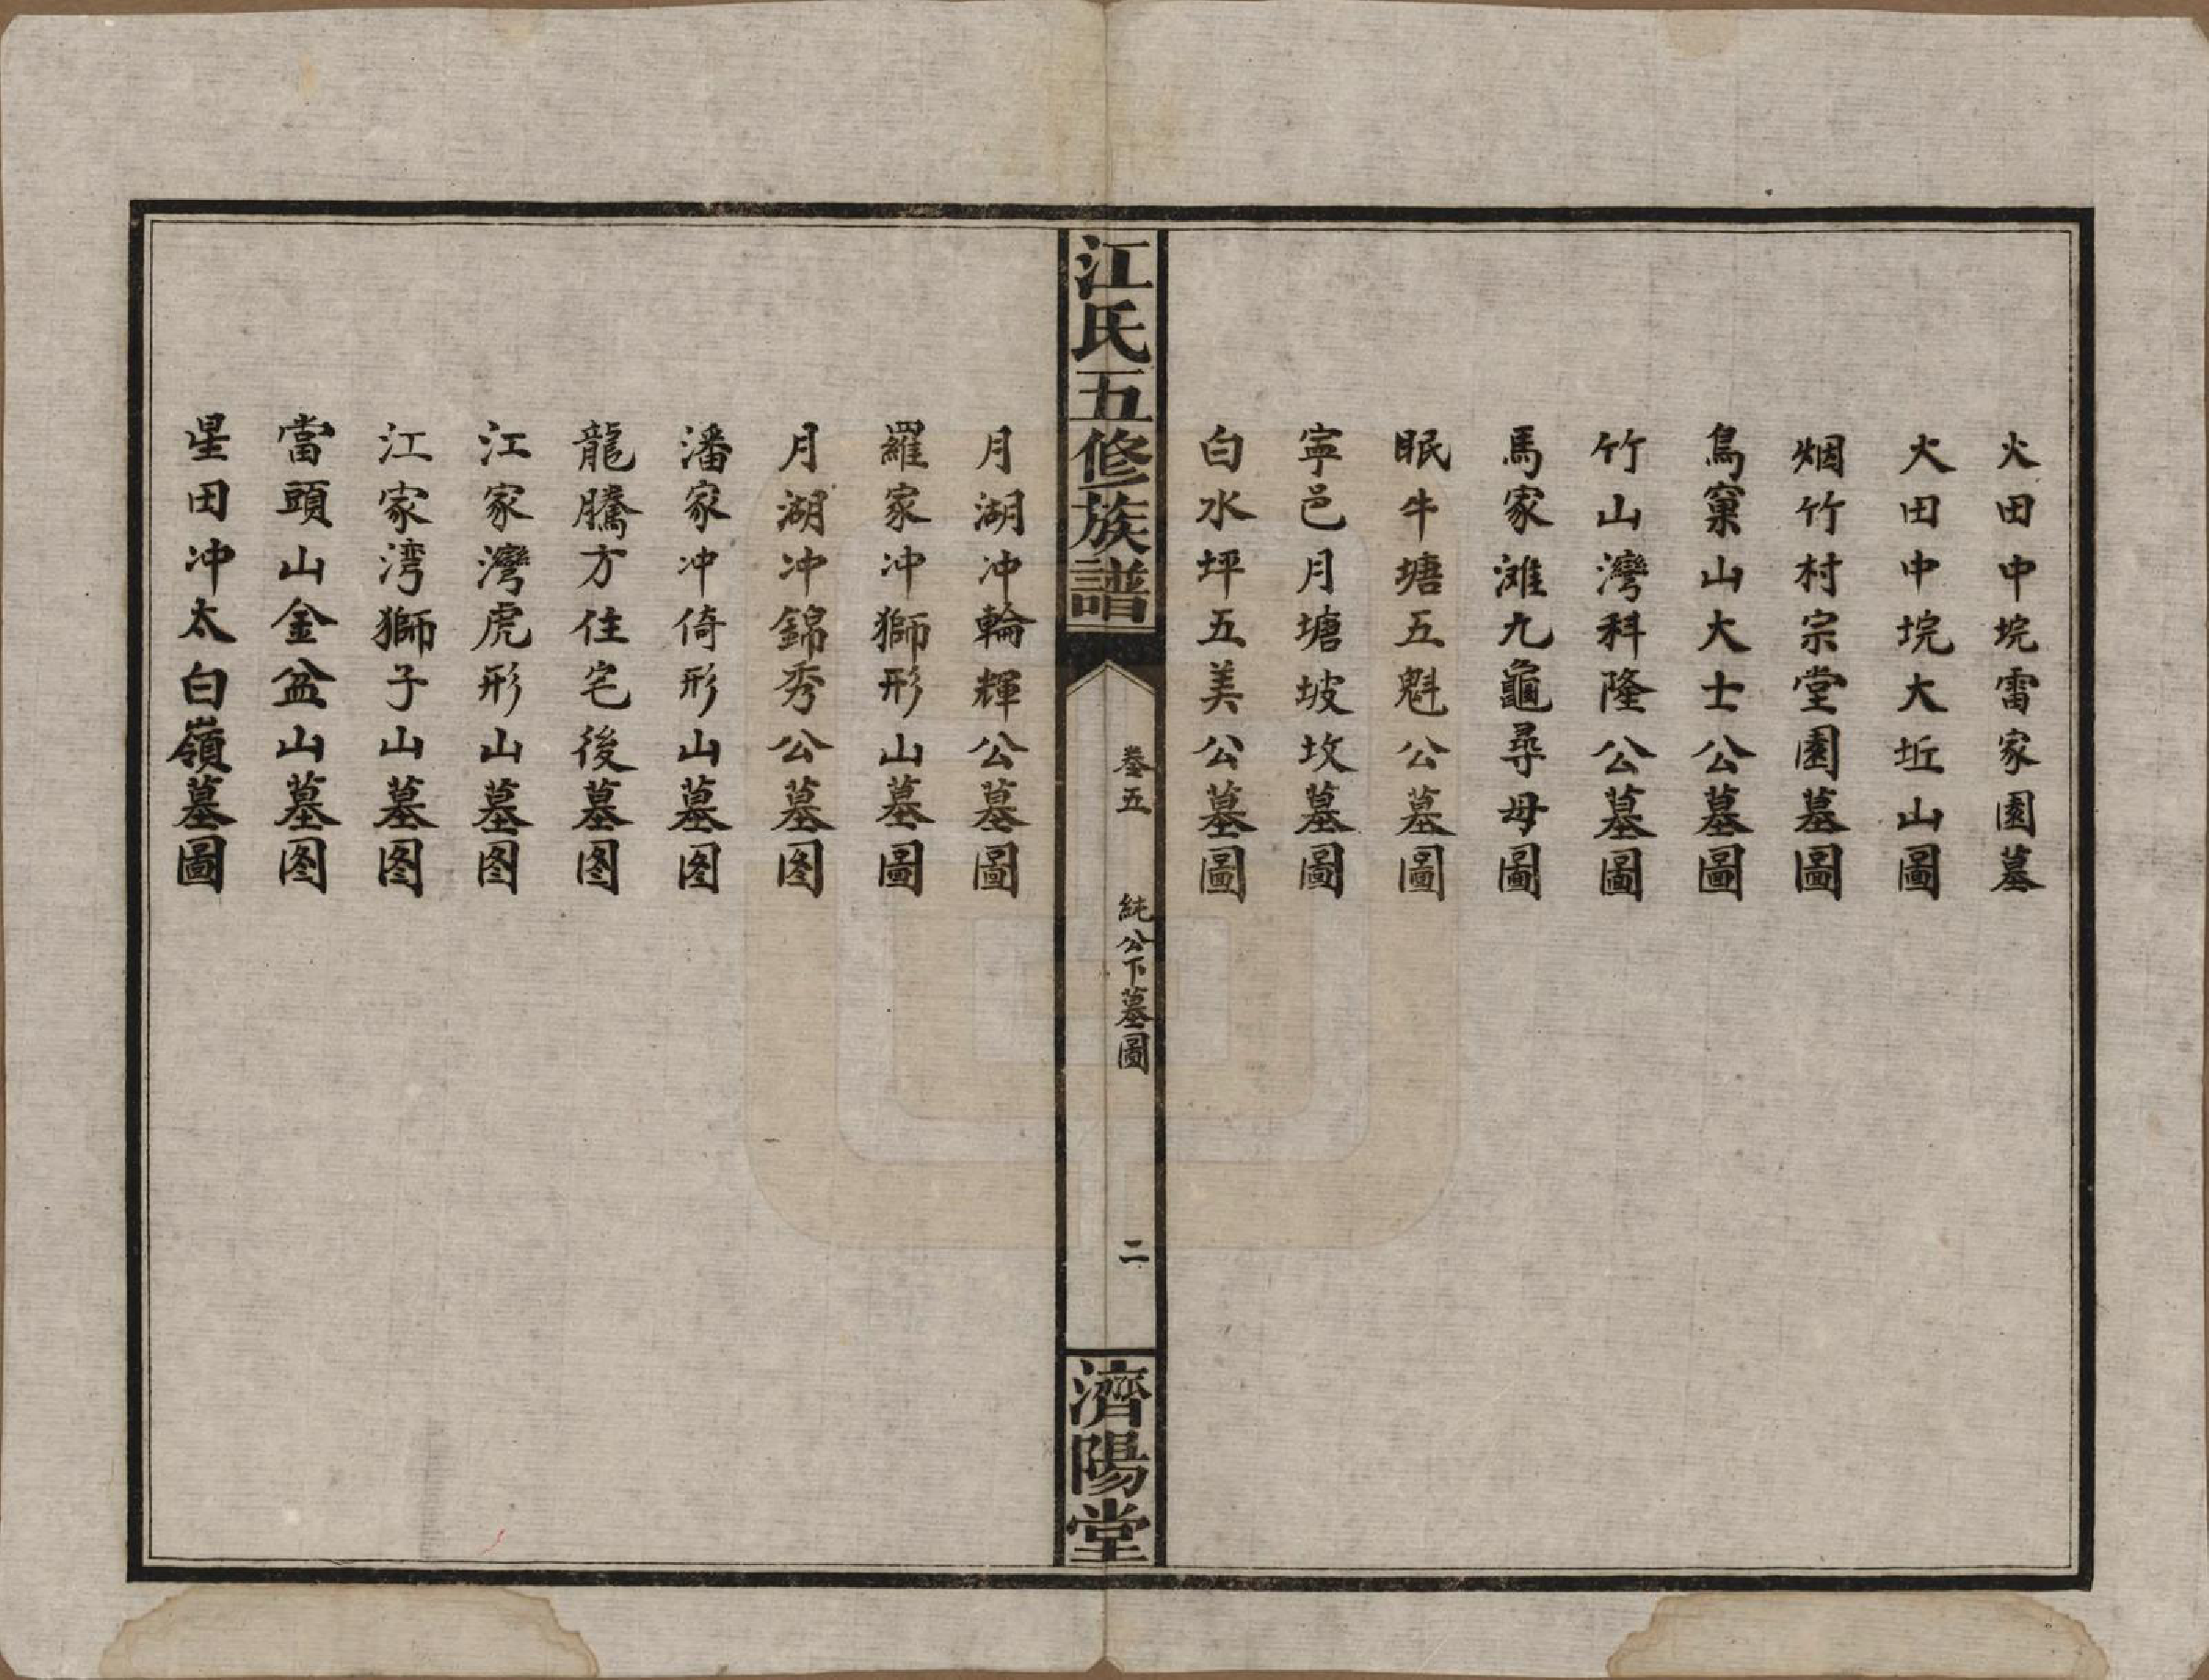 火田中垸雷家園墓
大田中垸大坵山圖
烟竹村宗堂園墓圖
烏窠山大士公墓圖
竹山灣科隆公墓圖
馬家滩九龜尋母圖
眠牛塘五魁公墓圖
寧邑月塘坡坟墓圖
白水坪五美公墓圖
江氏五修族譜
卷五
純公下墓圖
二
濟陽堂
月湖冲輪輝公墓圖
羅家冲獅形山墓圖
月湖冲錦秀公墓图
潘家冲倚形山墓图
龍騰方住宅後墓图
江家灣虎形山墓图
江家湾獅子山墓图
當頭山金盆山墓图
星田冲太白嶺墓圖